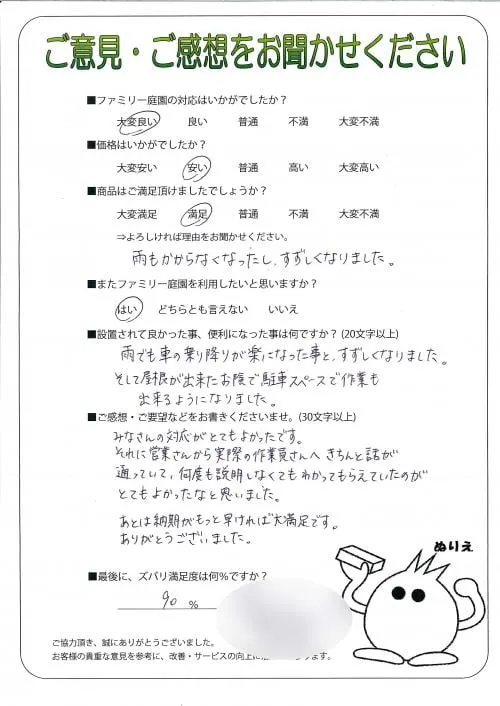 ご意見・ご感想をお聞かせください
■ファミリー庭園の対応はいかがでしたか？
大変良い 良い 普通 不満 大変不満
■価格はいかがでしたか？
大変安い 安い 普通 高い 大変高い
■商品はご満足頂けましたでしょうか？
大変満足 満足 普通 不満 大変不満
⇒よろしければ理由をお聞かせください。
雨もかからなくなったし、すずしくなりました。
■またファミリー庭園を利用したいと思いますか？
はい どちらとも言えない いいえ
■設置されて良かった事、便利になった事は何ですか？(20文字以上)
雨でも車の乗り降りが楽になった事と、すずしくなりました。
そして屋根が出来たお陰で駐車スペースで作業も
出来るようになりました。
■ご感想・ご要望などをお書きくださいませ。(30文字以上)
みなさんの対応がとてもよかったです。
それに営業さんから実際の作業員さんへきちんと話が
通っていて、何度も説明しなくてもわかってもらえていたのが
とてもよかったなと思いました。
あとは納期がもっと早ければ大満足です。
ありがとうございました。
ぬりえ
■最後に、ズバリ満足度は何％ですか？
90 ％
ご協力頂き、誠にありがとうございました。
お客様の貴重な意見を参考に、改善・サービスの向上に ります。